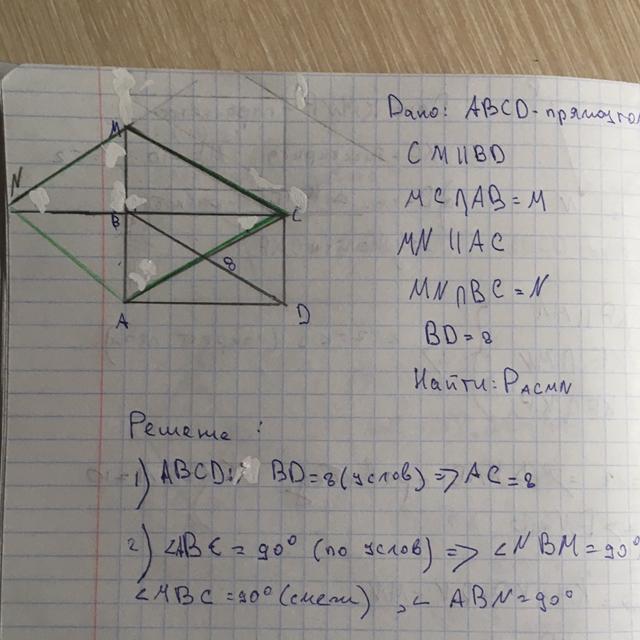 Дано: ABCD - прямоугол
CM || BD
MC ∩ AB = M
MN || AC
MN ∩ BC = N
BD = 8
Найти: P ACMN
M
N
B
C
8
A
D
Решение:
1) ABCD: BD = 8 (услов) => AC = 8
2) ∠ABC = 90° (по услов) => ∠NBM = 90°
∠MBC = 90° (смеж), ∠ABN = 90°